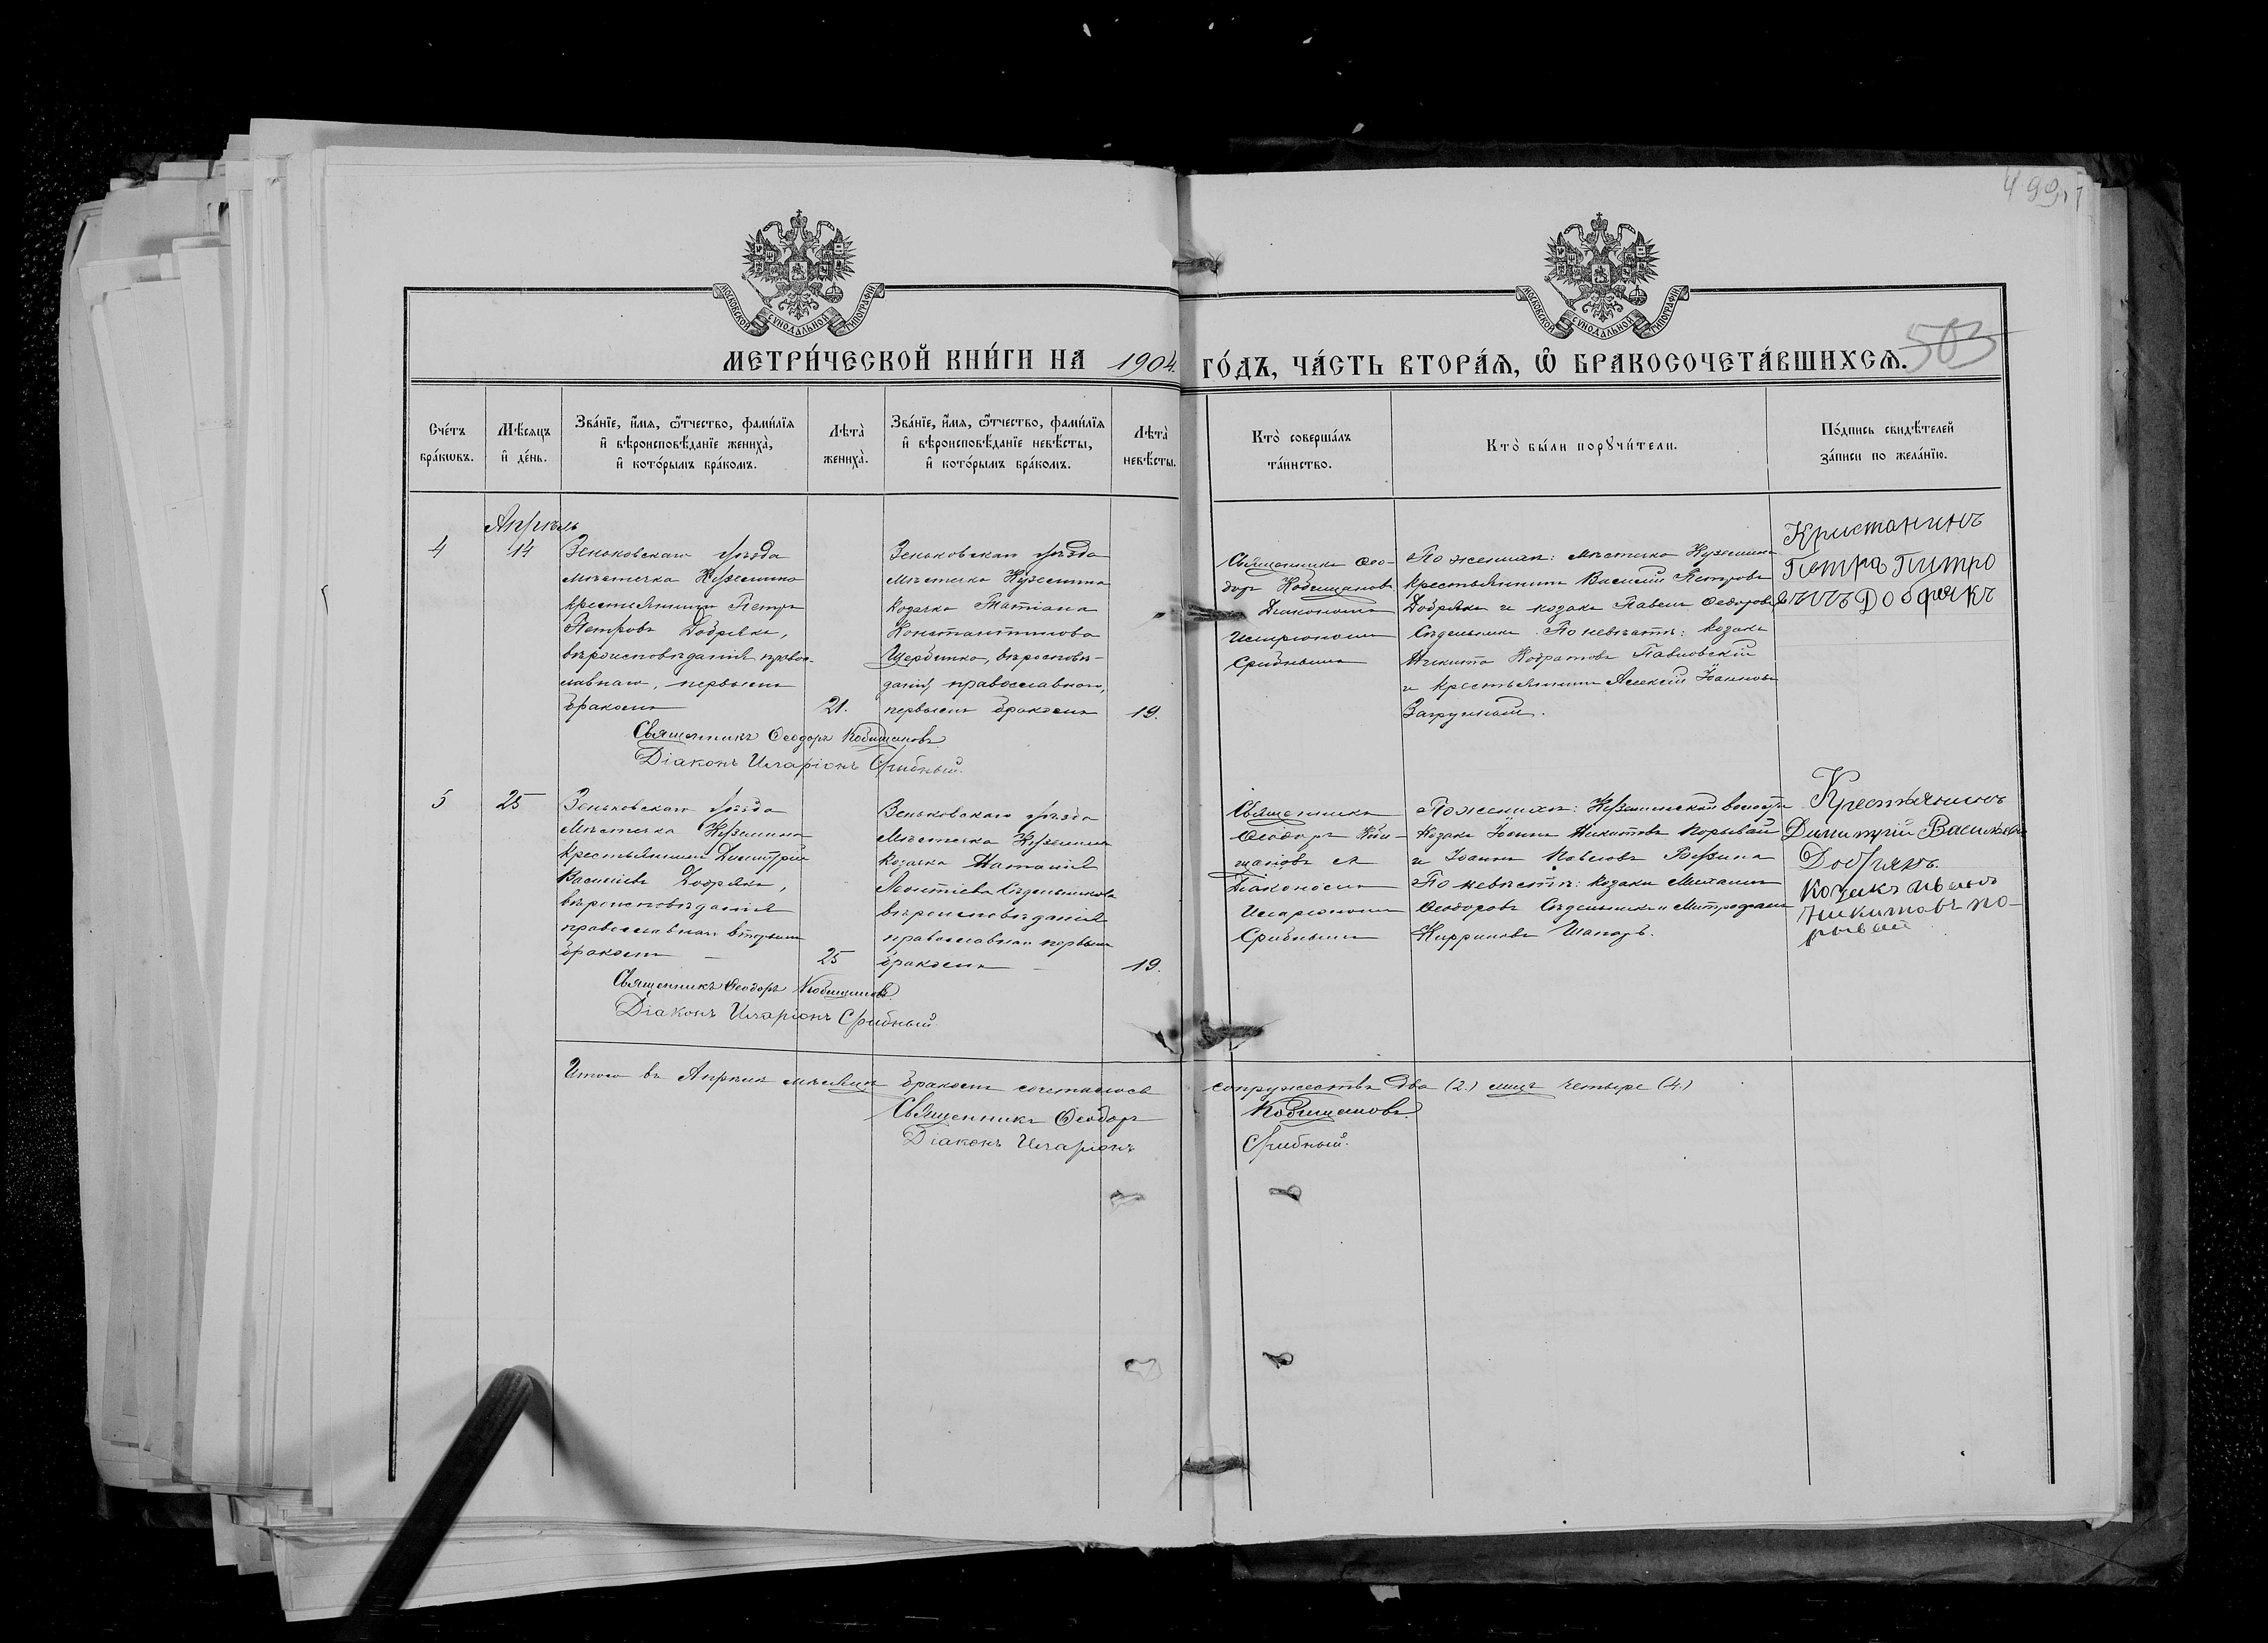 499
МОСКОВСКОЙ СѴНОДАЛЬНОЙ ТИПОГРАФІИ
МОСКОВСКОЙ СѴНОДАЛЬНОЙ ТИПОГРАФІИ
503
МЕТРИ́ЧЕСКОЙ КНИ́ГИ НА 1904 ГО́ДЪ, ЧА́СТЬ ВТОРА́Я, Ѡ҆ БРАКОСОЧЕТА́ВШИХСЯ.
Сче́тъ бра́кωвъ.
Мѣ́сяцъ и҆ де́нь.
Зва́нїе, и҆́мя, ѻ҆́тчество, фами́лїя
и҆ вѣроисповѣ́данїе жениха̀,
и҆ кото́рымъ бра́комъ.
Лѣта̀ жениха̀.
Зва́нїе, и҆́мя, ѻ҆́тчество, фами́лїя
и҆ вѣроисповѣ́данїе невѣ́сты,
и҆ кото́рымъ бра́комъ.
Лѣта̀ невѣ́сты.
Кто̀ соверша́лъ
та́инство.
Кто̀ бы́ли порꙋчи́тели.
По́дпись свидѣ́телей
за́писи по жела́нїю.
Апрѣль
4
14
Зеньковскаго уѣзда
мѣстечка Куземина
крестьянинъ Петръ
Петровъ Добрякъ,
вѣроисповѣданія право-
славнаго, первымъ
бракомъ
21.
Зеньковскаго уѣзда
мѣстечка Куземина
козачка Татіана
Константинова
Щербинко, вѣроисповѣ-
данія православнаго,
первымъ бракомъ
19.
Священникъ Ѳео-
доръ Кобищановъ
Діакономъ
Иларіономъ
Срибнымъ
По женихѣ: мѣстечка Куземина
крестьянинъ Василій Петровъ
Добрякъ и козакъ Павелъ Ѳеодоровъ
Сѣдельникъ. По невѣстѣ: козакъ
Никита Кодратовъ Павловскій
и крестьянинъ Алексій Іоанновъ
Кристанинъ
Петра Питро
вичъ Добрякъ
Священникъ Ѳеодоръ Кобищановъ
Діаконъ Иларіонъ Срибный.
5
25
Зеньковскаго уѣзда
Мѣстечка Куземина
крестьянинъ Димитрій
Василіевъ Добрякъ,
вѣроисповѣданія
православнаго вторымъ
бракомъ —
25
Зеньковскаго уѣзда
мѣстечка Куземина
козачка Наталія
Леонтіева Сѣдельникова
вѣроисповѣданія
православнаго первымъ
бракомъ —
19.
Священникъ
Ѳеодоръ Коби-
щановъ съ
Діакономъ
Иларіономъ
Срибнымъ
По женихѣ: Куземинской волости
козаки Іоаннъ Никитовъ Порывай
и Іоаннъ Павловъ
По невѣстѣ: козаки Михаилъ
Ѳеодоровъ Сѣдельникъ и Митрофанъ
Шаповъ.
Крестьянинъ
Димитрій Васильевъ
Добрякъ.
Козакъ
Никитовъ по-
рывай
Священникъ Ѳеодоръ Кобищановъ.
Діаконъ Иларіонъ Срибный.
Итого въ Апрѣлѣ мѣсяцѣ бракомъ сочеталось супружествъ два (2.) лицъ четыре (4.)
Священникъ Ѳеодоръ Кобищановъ.
Діаконъ Иларіонъ Срибный.